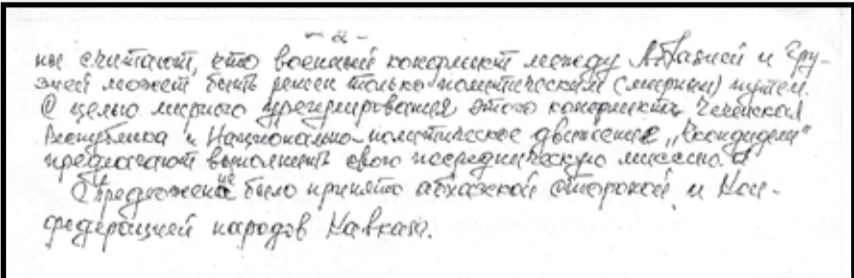 - 2 -
ны считают, что военный конфликт между Абхазией и Гру-
зией может быть решен только политическим (мирным) путем.
С целью мирного урегулирования этого конфликта Чеченская
Республика и Национально-политическое движение „
предлагают выполнить свою посредническую миссию.
Предложение было принято абхазской стороной и Кон-
федерацией народов Кавказа.